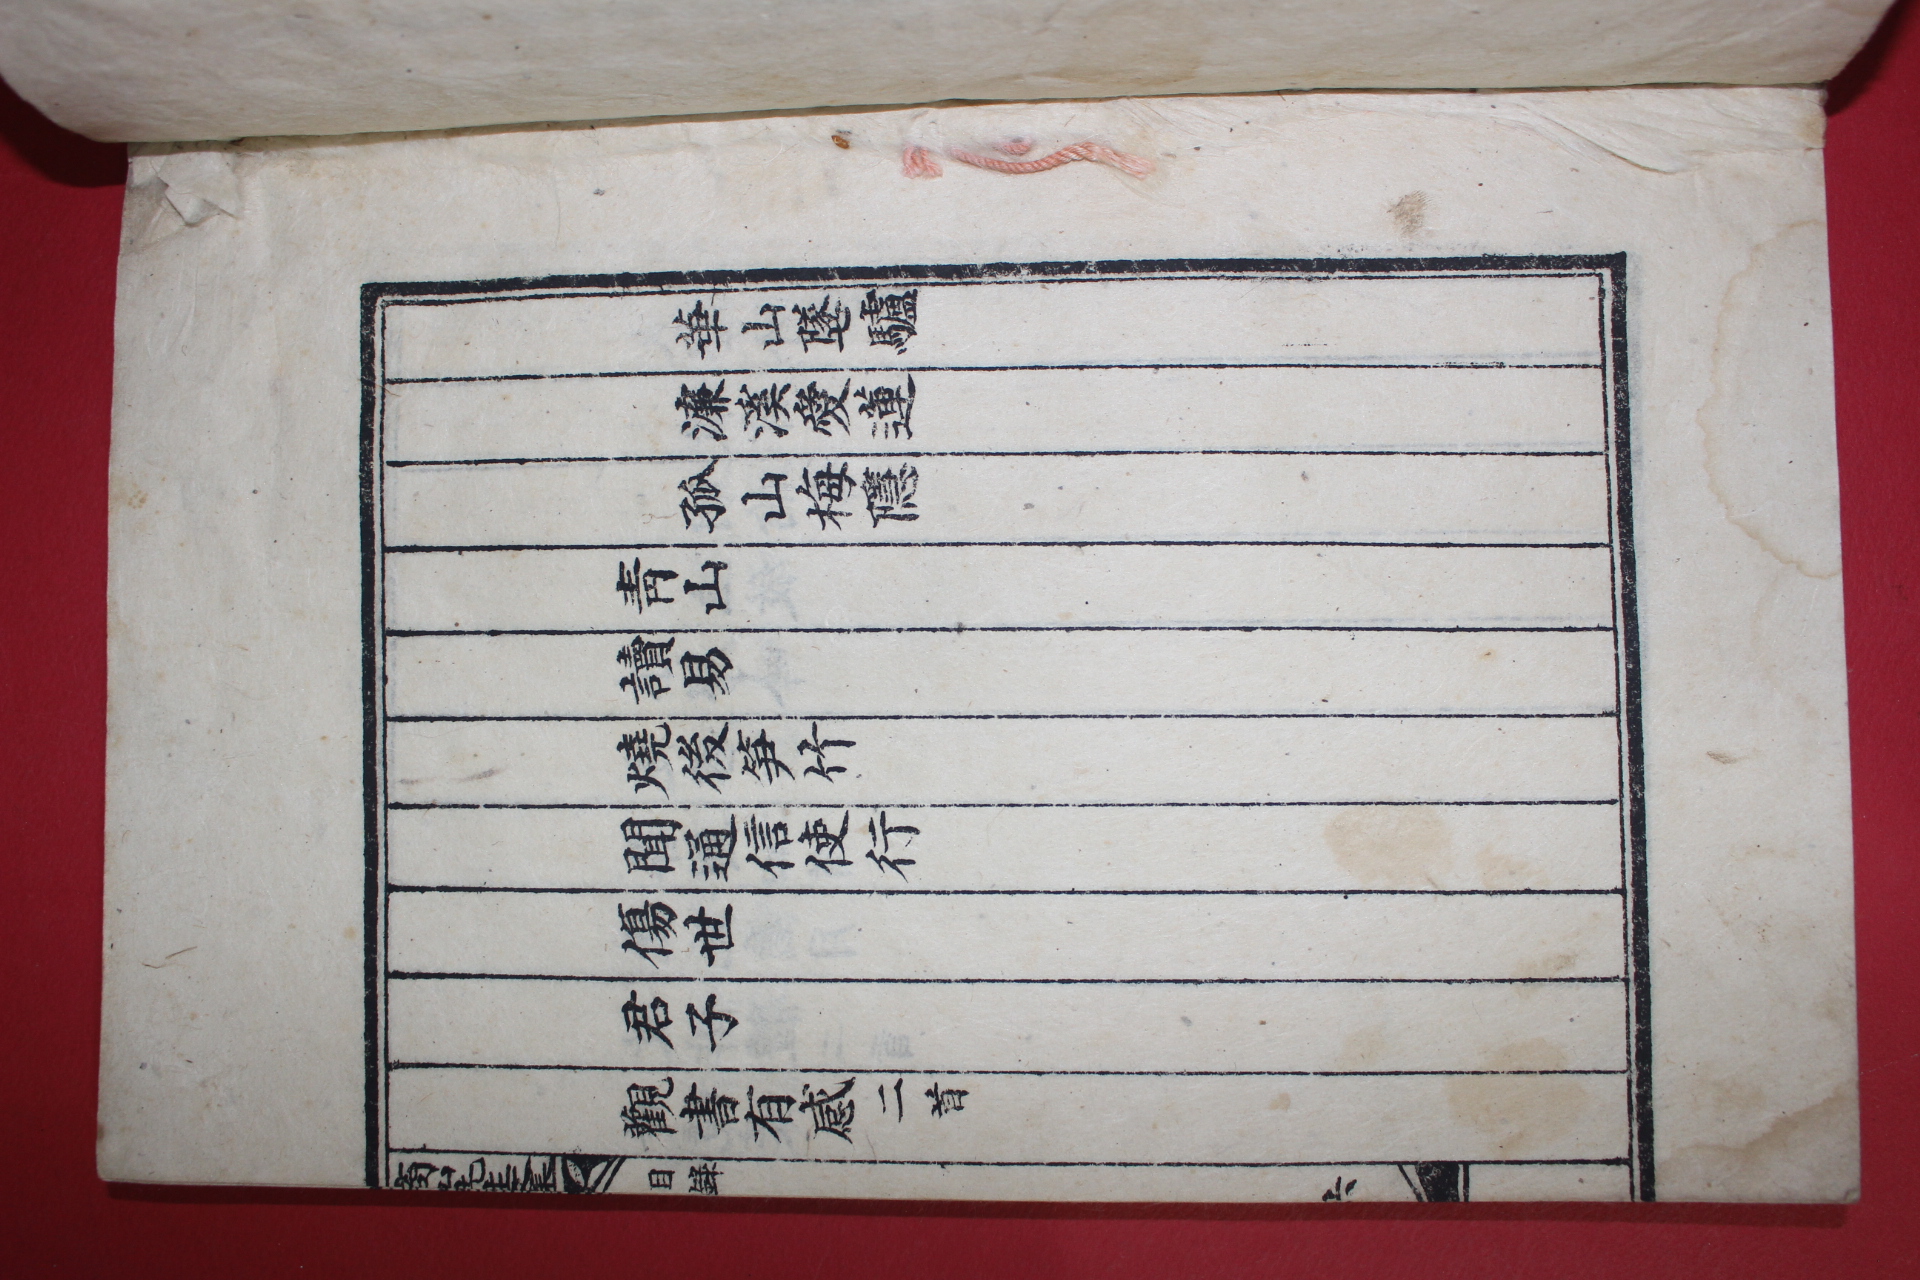 華山墜驢
濂溪愛蓮
孤山梅隱
靑山
讀易
燒後笋竹
聞通信使行
傷世
君子
觀書有感 二首
商山先生文集
目錄
六